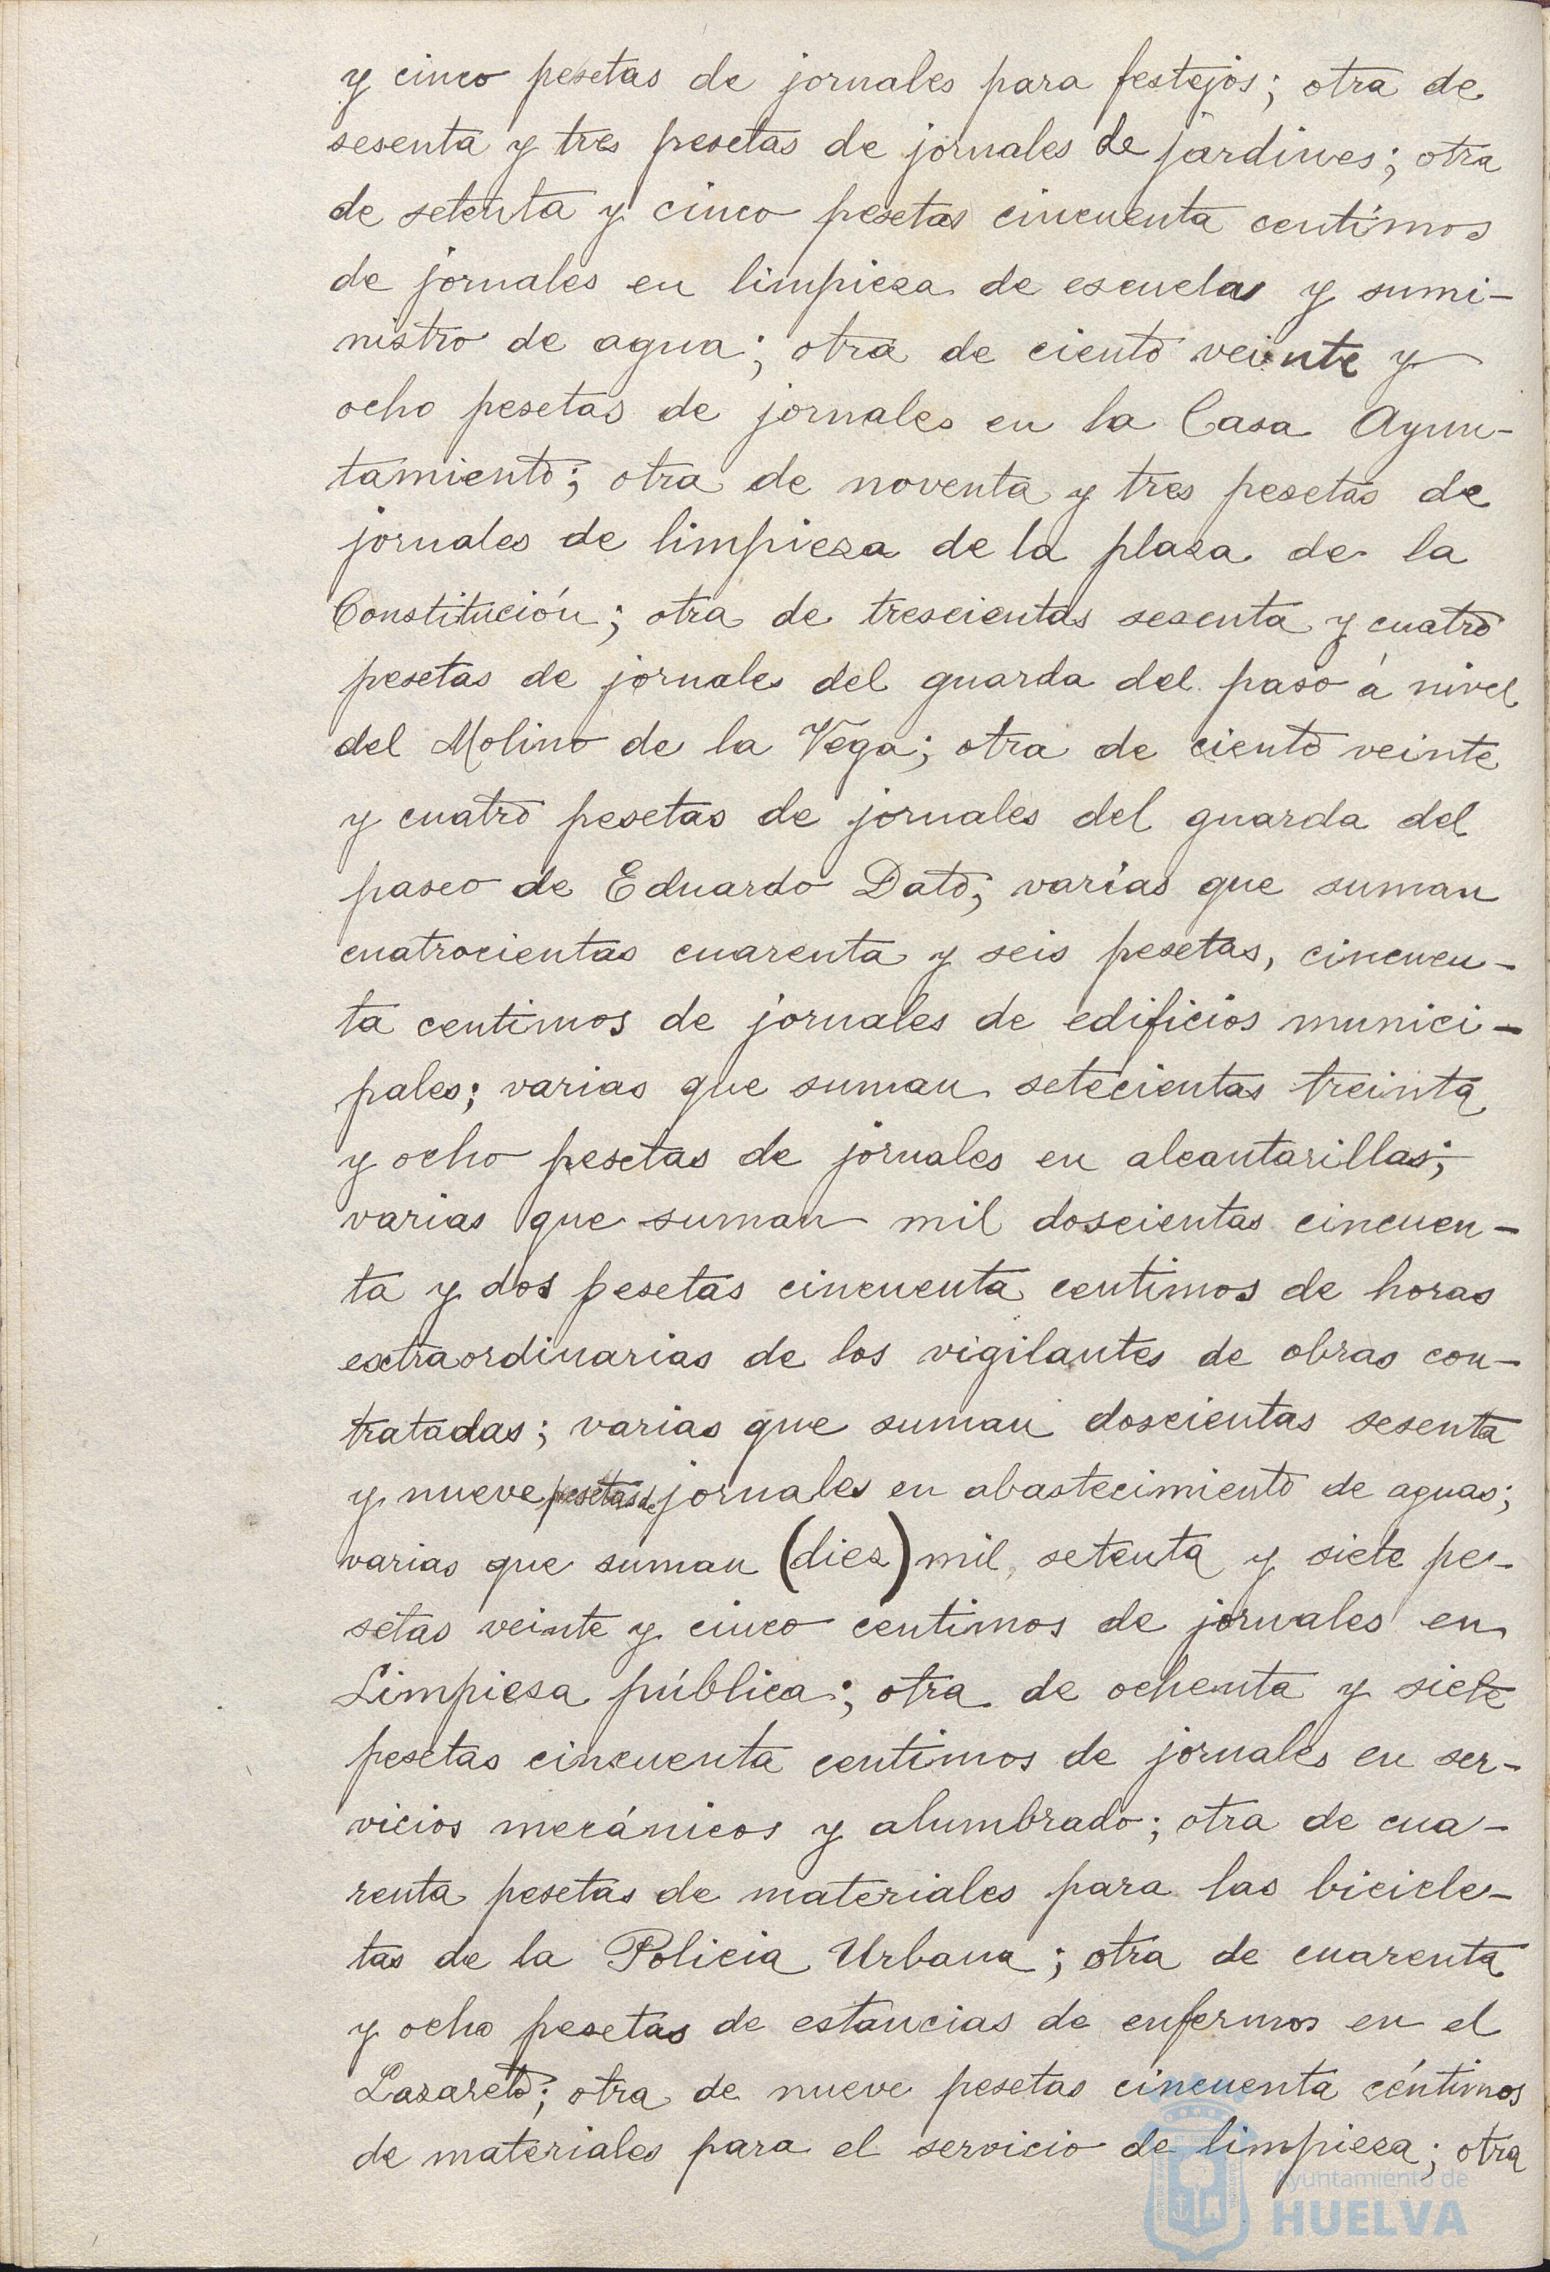 y cinco pesetas de jornales para festejos; otra de
sesenta y tres pesetas de jornales de jardines; otra
de setenta y cinco pesetas cincuenta centimos
de jornales en limpieza de escuelas y sumi-
nistro de agua; otra de ciento veinte y
ocho pesetas de jornales en la Casa Ayun-
tamiento; otra de noventa y tres pesetas de
jornales de limpieza de la plaza de la
Constitución; otra de trescientas sesenta y cuatro
pesetas de jornales del guarda del paso á nivel
del Molino de la Vega; otra de ciento veinte
y cuatro pesetas de jornales del guarda del
paseo de Eduardo Dato; varias que suman
cuatrocientas cuarenta y seis pesetas, cincuen-
ta centimos de jornales de edificios munici-
pales; varias que suman setecientas treinta
y ocho pesetas de jornales en alcantarillas;
varias que suman mil doscientas cincuen-
ta y dos pesetas cincuenta centimos de horas
extraordinarias de los vigilantes de obras con-
tratadas; varias que suman doscientas sesenta
y nueve pesetas de jornales en abastecimiento de aguas;
varias que suman (diez) mil, setenta y siete pe-
setas veinte y cinco centimos de jornales en
Limpieza pública; otra de ochenta y siete
pesetas cincuenta centimos de jornales en ser-
vicios mecánicos y alumbrado; otra de cua-
renta pesetas de materiales para las bicicle-
tas de la Policia Urbana; otra de cuarenta
y ocho pesetas de estancias de enfermos en el
Lazareto; otra de nueve pesetas cincuenta céntimos
de materiales para el servicio de limpieza; otra
Ayuntamiento de
HUELVA